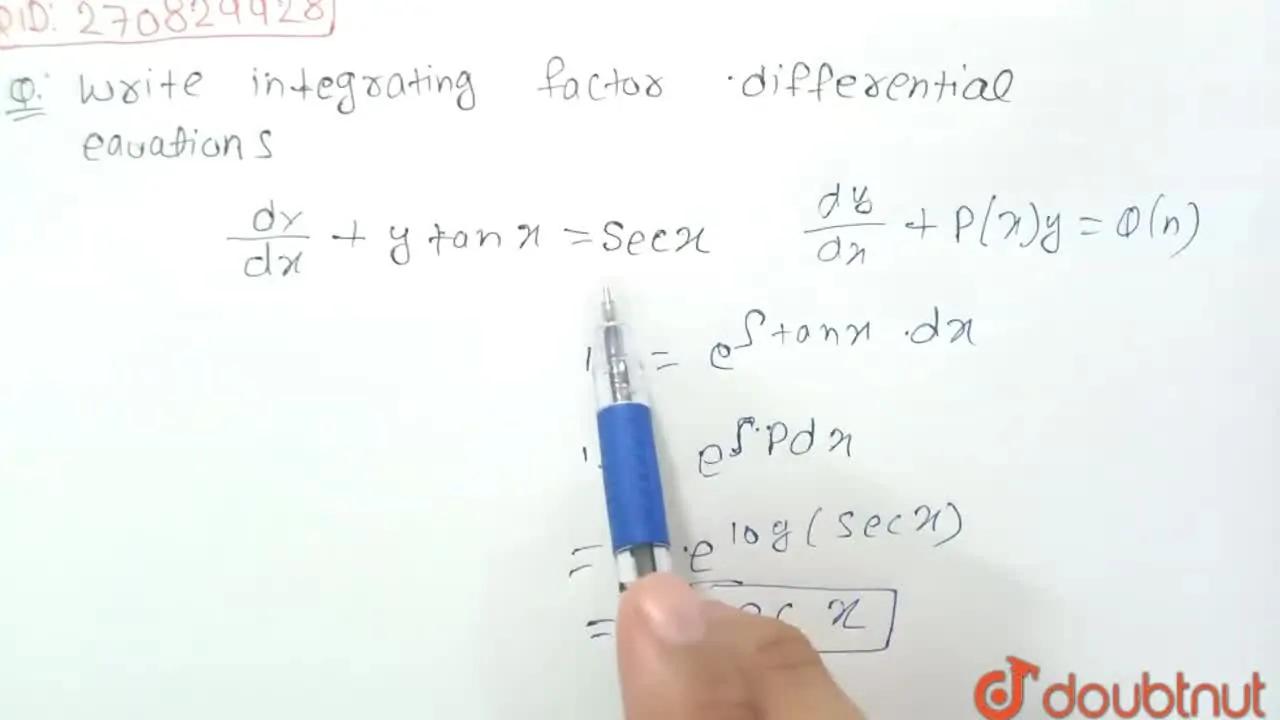 PID: 270829928
Q. Write integrating factor .differential
eauations
dy/dx + y tan x = Sec x
dy/dx + P(x)y = Q(n)
= e^∫tanx .dx
e^∫.Pdx
= .e^log(secx)
= x
doubtnut